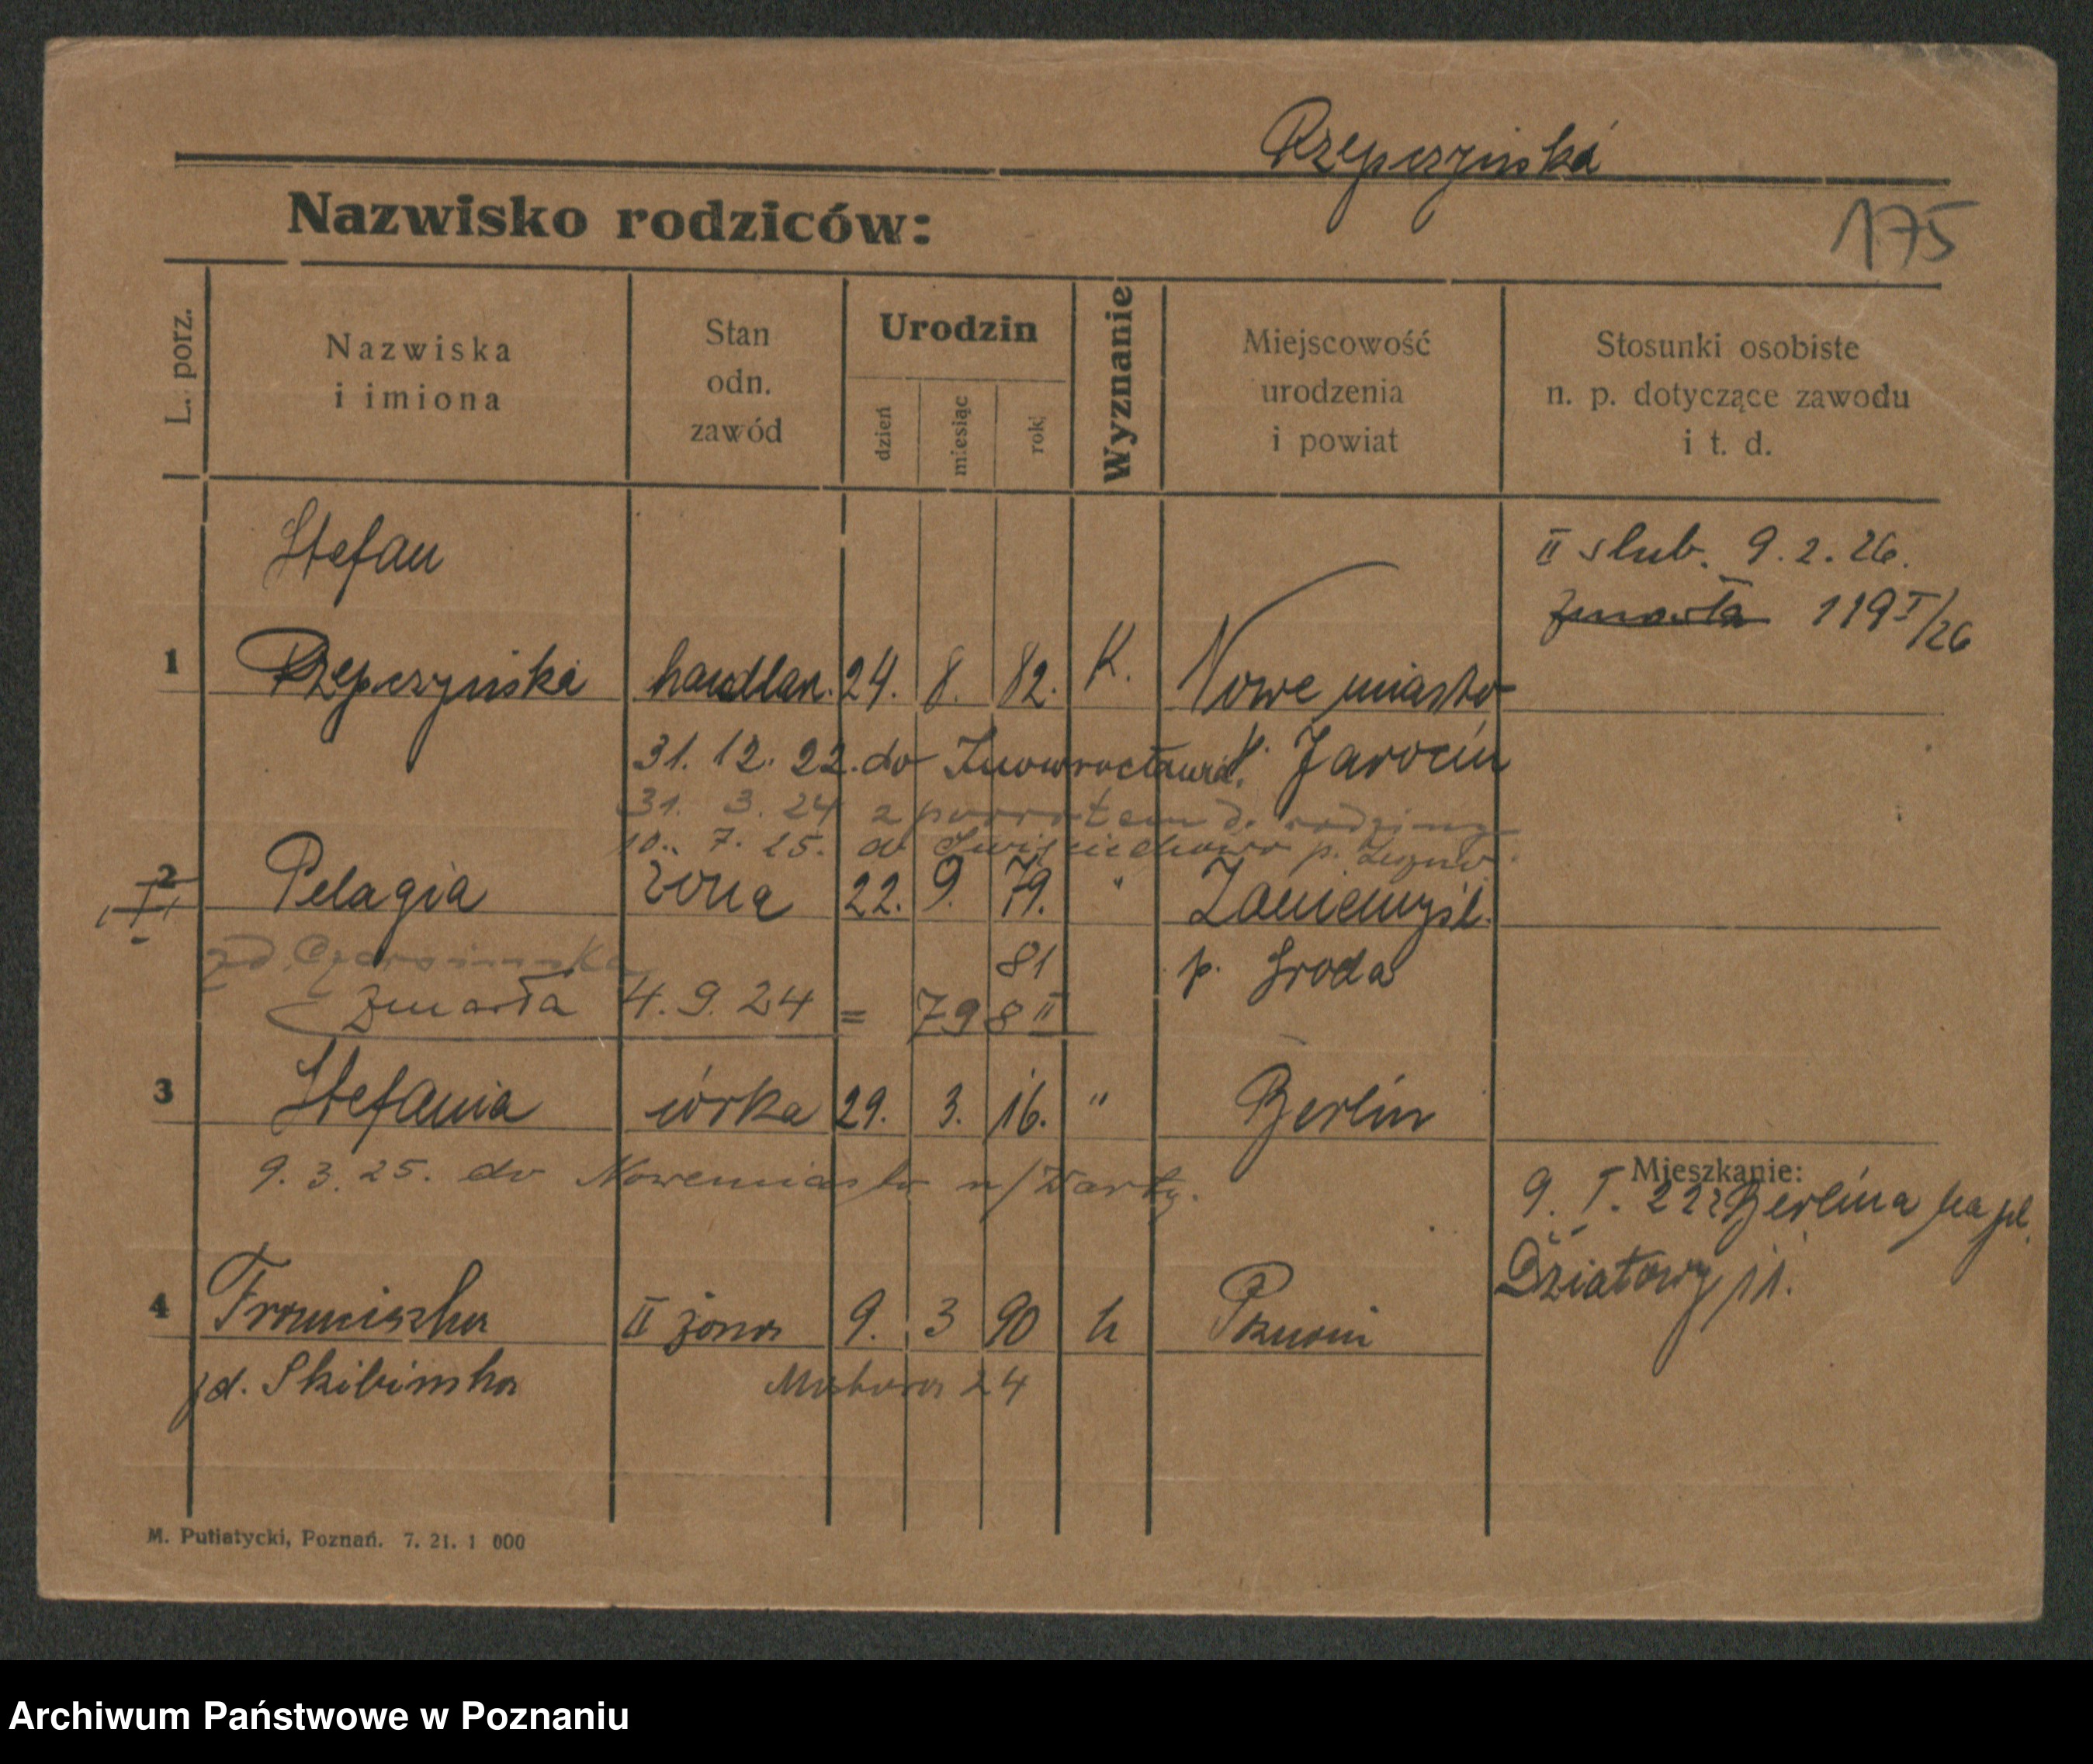 Rzepczyński
Nazwisko rodziców:
175
L. porz.
Nazwiska
i imiona
Stan
odn.
zawód
Urodzin
dzień
miesiąc
rok
Wyznanie
Miejscowość
urodzenia
i powiat
Stosunki osobiste
n. p. dotyczące zawodu
i t. d.
Stefan
II slub. 9. 2. 26.
zmarła 119 I/26
1 Rzepczyński handlarz. 24. 8. 82. K. Nowe miasto
31. 12. 22. do Inowrocławia. Jarocin
31. 3. 24 z powrotem do rodziny
10. 7. 25. do p.
2 Pelagia żona 22. 9. 79. " Zaniemyśl.
I
zd. 81 p. Sroda
zmarła 4. 9. 24 = 798 II
3 Stefania córka 29. 3. 16. " Berlin
9. 3. 25. do Nowemiasto n/Wartą.
Mieszkanie:
9. I. 22 z Berlina na pl.
Działowy 11.
4 Franciszka II żona 9. 3 90 k Poznań
zd. Skibinska 24
M. Putiatycki, Poznań. 7. 21. 1 000
Archiwum Państwowe w Poznaniu